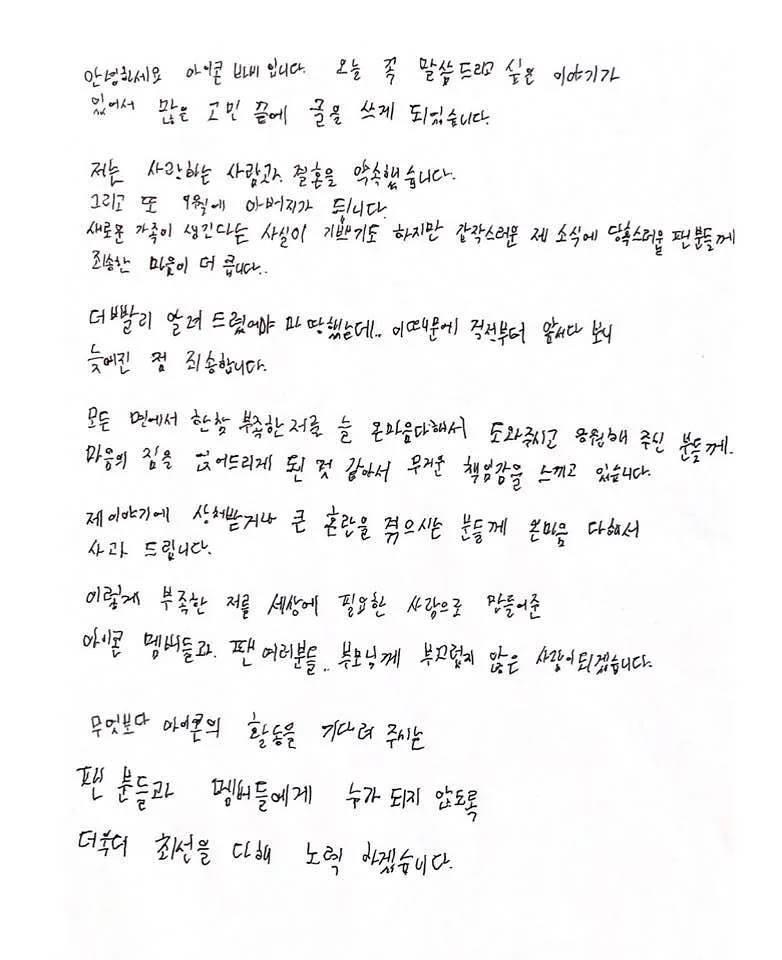 안녕하세요 아이콘 바비 입니다. 오늘 꼭 말씀드리고 싶은 이야기가
있어서 많은 고민 끝에 글을 쓰게 되었습니다.
저는 사랑하는 사람과 결혼을 약속했습니다.
그리고 또 9월에 아버지가 됩니다.
새로운 가족이 생긴다는 사실이 기쁘기도 하지만 갑작스러운 제 소식에 당혹스러울 팬분들께
죄송한 마음이 더 큽니다..
더 빨리 알려 드렸어야 마땅했는데.. 이때문에 걱정부터 앞서다 보니
늦어진 점 죄송합니다.
모든 면에서 한참 부족한 저를 늘 온마음다해서 도와주시고 응원해 주신 분들께.
마음의 짐을 얹어드리게 된 것 같아서 무거운 책임감을 느끼고 있습니다.
제이야기에 상처받거나 큰 혼란을 겪으시는 분들께 온마음 다해서
사과 드립니다.
이렇게 부족한 저를 세상에 필요한 사람으로 만들어준
아이콘 멤버들과. 팬 여러분들.. 부모님께 부끄럽지 않은 사람이되겠습니다.
무엇보다 아이콘의 활동을 기다려 주시는
팬 분들과 멤버들에게 누가 되지 않도록
더욱더 최선을 다해 노력 하겠습니다.